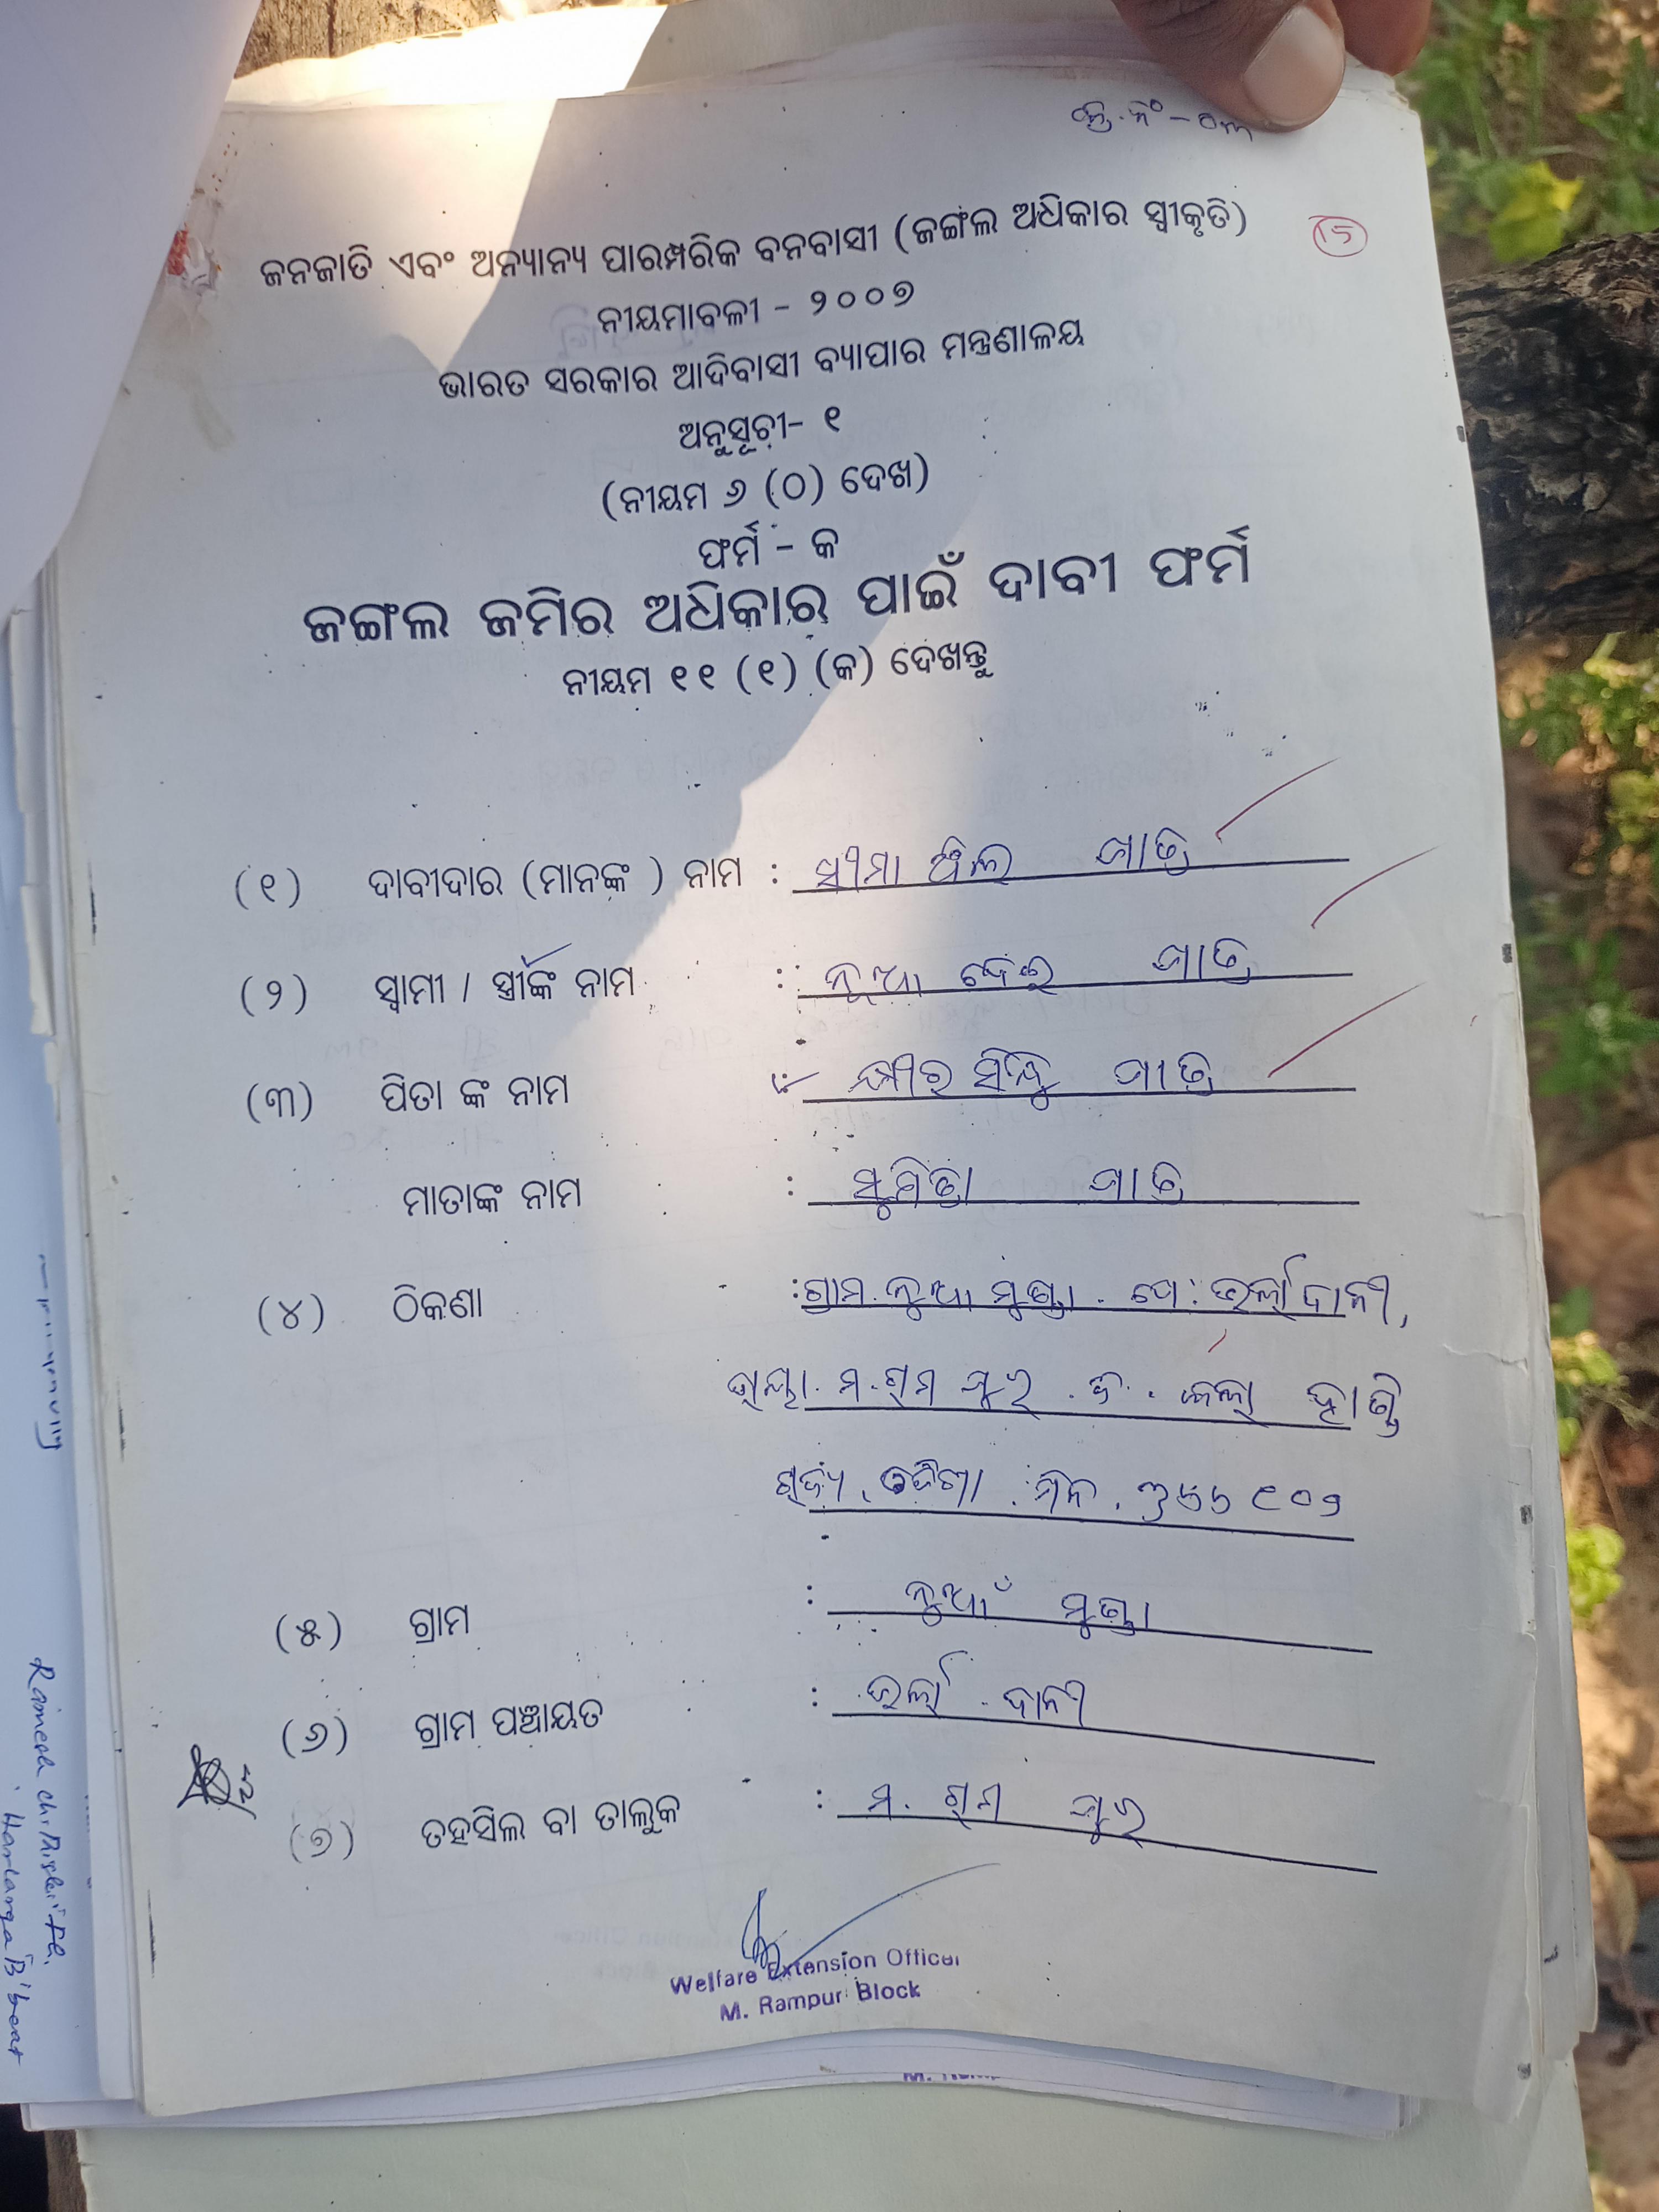 କ୍ର.ନଂ-୦୩
୧୫
ଜନଜାତି ଏବଂ ଅନ୍ୟାନ୍ୟ ପାରମ୍ପରିକ ବନବାସୀ (ଜଙ୍ଗଲ ଅଧିକାର ସ୍ୱୀକୃତି)
ନୀୟମାବଳୀ - ୨୦୦୭
ଭାରତ ସରକାର ଆଦିବାସୀ ବ୍ୟାପାର ମନ୍ତ୍ରଣାଳୟ
ଅନୁସୂଚୀ- ୧
(ନୀୟମ ୬ (ଠ) ଦେଖ)
ଫର୍ମ - କ
ଜଙ୍ଗଲ ଜମିର ଅଧିକାର ପାଇଁ ଦାବୀ ଫର୍ମ
ନୀୟମ ୧୧ (୧) (କ) ଦେଖନ୍ତୁ
(୧) ଦାବୀଦାର (ମାନଙ୍କ ) ନାମ : ପାତ୍ର
(୨) ସ୍ୱାମୀ / ସ୍ତ୍ରୀଙ୍କ ନାମ : ନୂଆ ଦେଇ ପାତ୍ର
(୩) ପିତା ଙ୍କ ନାମ : କ୍ଷୀର ସିନ୍ଧୁ ପାତ୍ର
ମାତାଙ୍କ ନାମ : ସୁମିତ୍ରା ପାତ୍ର
(୪) ଠିକଣା : ଗ୍ରାମ. ନୁଆ ମୁଣ୍ଡା. ପୋ: ଉର୍ଲାଦାନୀ,
ମ. ରାମ ପୁର. ଜି.
ରାଜ୍ୟ, ଓଡିଶା. ପିନ. ୭୬୬୧୦୨
(୫) ଗ୍ରାମ : ନୁଆଁ ମୁଣ୍ଡା
(୬) ଗ୍ରାମ ପଞ୍ଚାୟତ : ଉର୍ଲା ଦାନୀ
(୭) ତହସିଲ ବା ତାଲୁକ : ମ. ରାମ ପୁର
Welfare Extension Officer
M. Rampur Block
Ramesh ch.